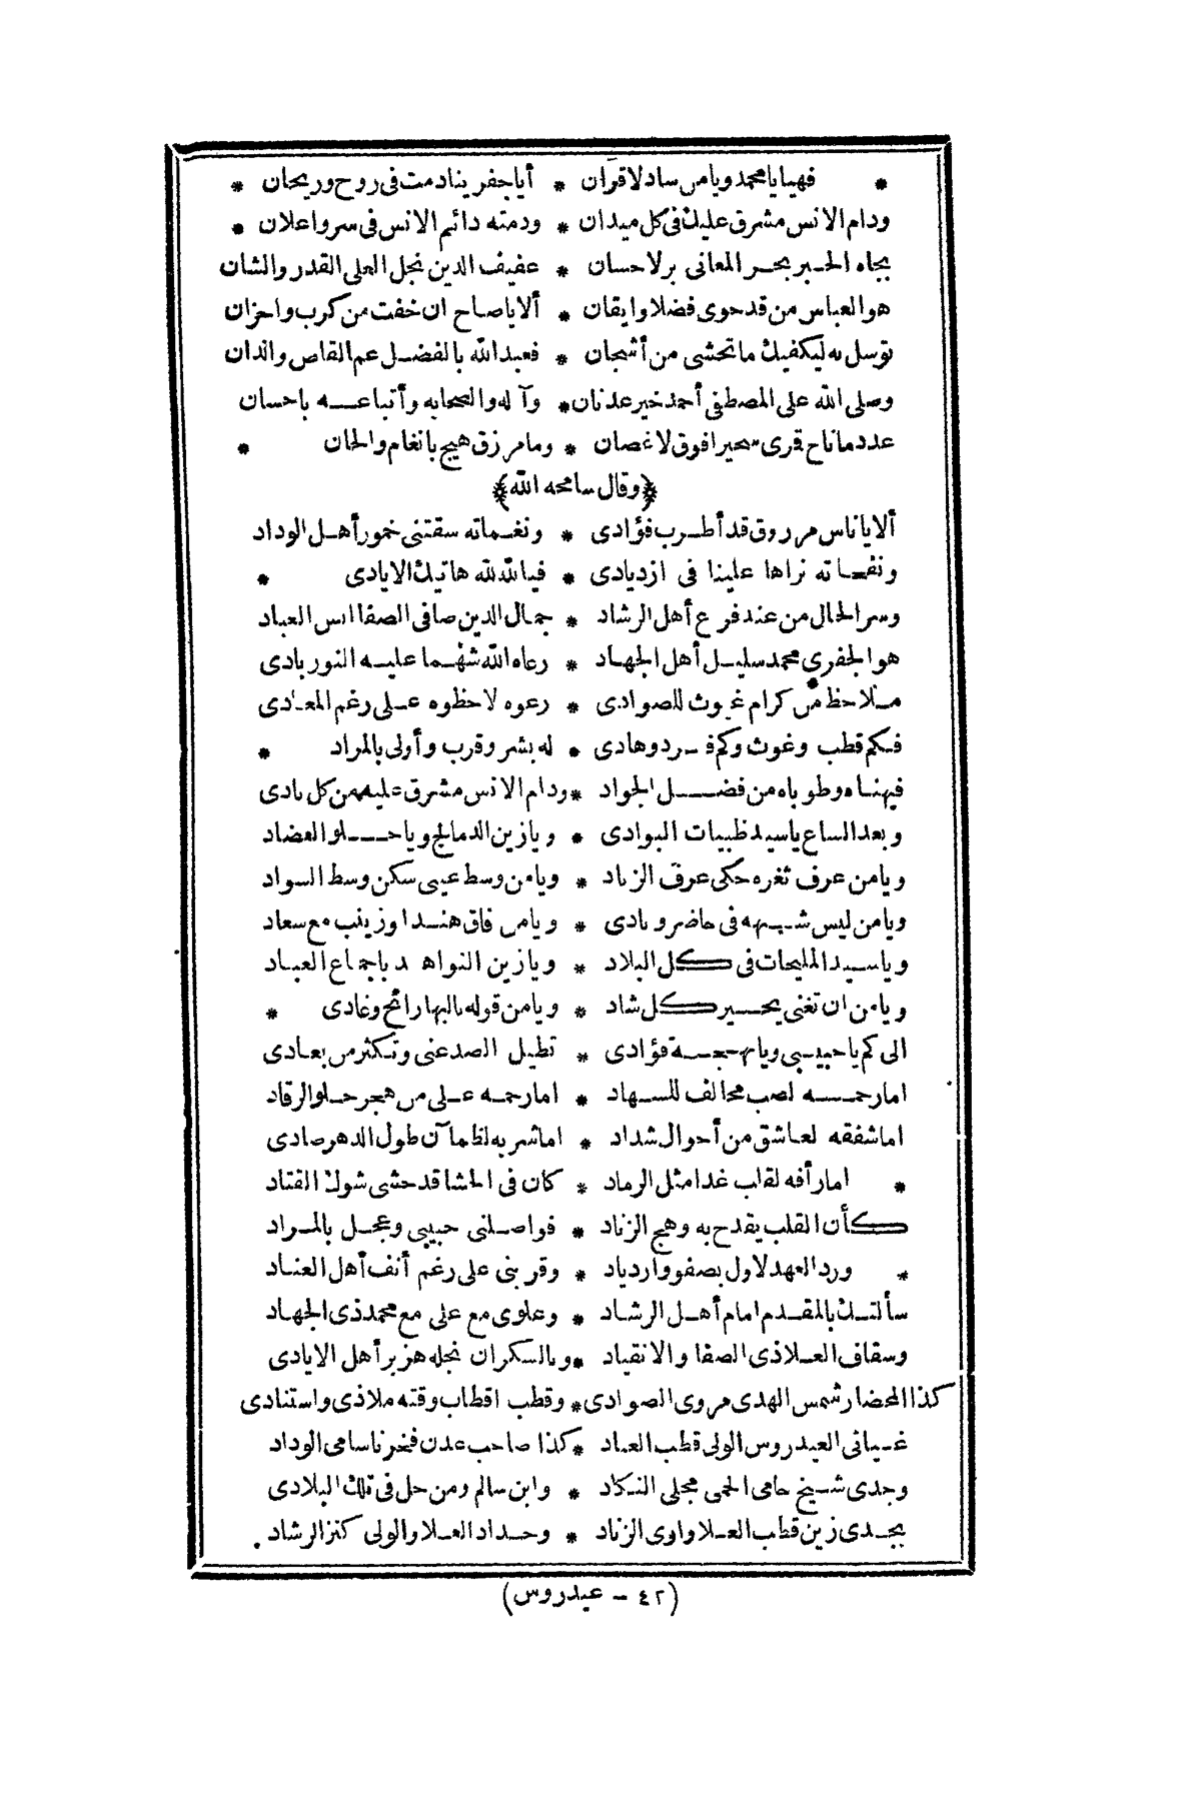 * فهيا يا محمد ويا من ساد لاقران * أيا جفرينا دمت فى روح وريحان *
ودام الانس مشرق عليك فى كل ميدان * ودمته دائم الانس فى سر واعلان *
بجاه الحبر بحر المعانى بر لاحسان * عفيف الدين نجل العلى القدر والشان
هو العباس من قد حوى فضلا وايقان * ألا يا صاح ان خفت من كرب واحزان
توسل به ليكفيك ما تخشى من أشجان * فعبد الله بالفضل عم القاص والدان
وصلى الله على المصطفى أحمد خير عدنان * وآله والصحابه وأتباعه باحسان
عدد ما ناح قمرى سحيرا فوق لاغصان * وما مرزق هيج بانغام والحان *
﴿وقال سامحه الله﴾
ألا يا ناس مرزوق قد أطرب فؤادى * ونغماته سقتنى خمور أهل الوداد
ونفحاته نراها علينا فى ازديادى * فيا لله لله هاتيك الايادى *
وسر الحال من عند فرع أهل الرشاد * جمال الدين صافى الصفا انس العباد
هو الجفرى محمد سليل أهل الجهاد * رعاه الله شهما عليه النور بادى
ملاحظ من كرام غيوث للصوادى * رعوه لاحظوه على رغم المعادى
فكم قطب وغوث وكم فرد وهادى * له بشر وقرب وأولى بالمراد *
فيهناه وطوباه من فضل الجواد * ودام الانس مشرق عليه من كل نادى
وبعد الساع يا سيد ظبيات البوادى * ويا زين الدمالج ويا حلو العضاد
ويا من عرف ثغره حكى عرف الزباد * ويا من وسط عينى سكن وسط السواد
ويا من ليس شبيهه فى حاضر وبادى * ويا من فاق هندا وزينب مع سعاد
ويا سيد المليحات فى كل البلاد * ويا زين النواهد باجماع العباد
ويا من ان تغنى يحير كل شاد * ويا من قوله بالبها رائح وغادى *
الى كم يا حبيبى ويا مهجة فؤادى * تطيل الصد عنى وتكثر من بعادى
اما رحمه لصب محالف للسهاد * اما رحمه على من هجر حلو الرقاد
اما شفقه لعاشق من أحوال شداد * اما شربه لظمآن طول الدهر صادى
* اما رأفه لقلب غدا مثل الرماد * كان فى الحشا قد حشى شوك القتاد
كأن القلب يقدح به وهج الزناد * فواصلنى حبيبى وعجل بالمراد
* ورد العهد لاول بصفو وازدياد * وقربنى على رغم أنف أهل العناد
سألتك بالمقدم امام أهل الرشاد * وعلوى مع على مع محمد ذى الجهاد
وسقاف العلا ذى الصفا والانقياد * وبالسكران نجله هزبر أهل الايادى
كذا المحضار شمس الهدى مروى الصوادى * وقطب اقطاب وقته ملاذى واستنادى
غياثى العيدروس الولى قطب العباد * كذا صاحب عدن فخرنا سامى الوداد
وجدى شيخ حامى الحمى مجلى النكاد * وابن سالم ومن حل فى تلك البلادى
بجدى زين قطب العلا واوى الزناد * وحداد العلا والولى كنز الرشاد .
(٤٢ - عيدروس)